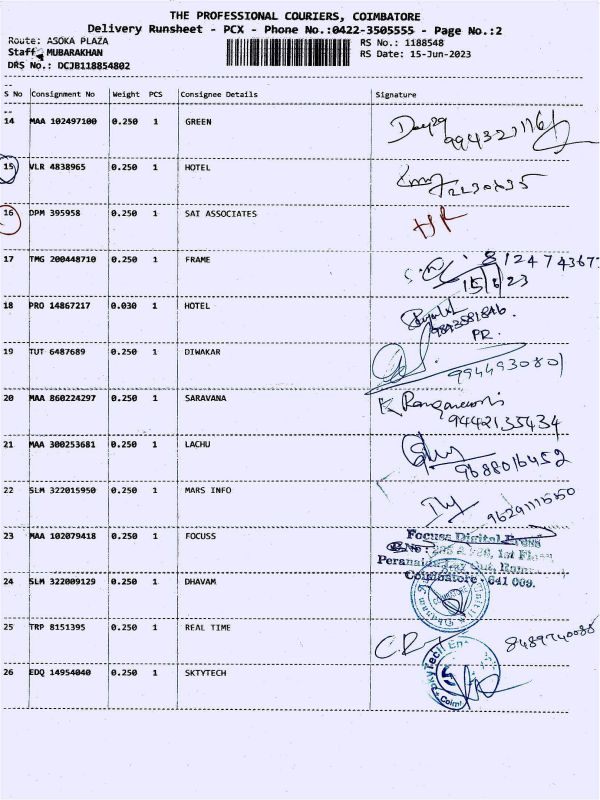 THE PROFESSIONAL COURIERS, COIMBATORE
Delivery Runsheet - PCX - Phone No.:0422-3505555 - Page No.:2
Route: ASOKA PLAZA RS No.: 1188548
Staff: MUBARAKHAN RS Date: 15-Jun-2023
DRS No.: DCJB118854802
S No Consignment No Weight PCS Consignee Details Signature
14 MAA 102497100 0.250 1 GREEN
15 VLR 4838965 0.250 1 HOTEL
16 DPM 395958 0.250 1 SAI ASSOCIATES HR
17 TMG 200448710 0.250 1 FRAME
15/6/23
18 PRO 14867217 0.030 1 HOTEL
PR.
19 TUT 6487689 0.250 1 DIWAKAR
20 MAA 860224297 0.250 1 SARAVANA
9442135434
21 MAA 300253681 0.250 1 LACHU
9688016452
22 SLM 322015950 0.250 1 MARS INFO
23 MAA 102079418 0.250 1 FOCUSS Focuss Digital Press
1st Floor
Coimbatore - 641 009.
24 SLM 322009129 0.250 1 DHAVAM
25 TRP 8151395 0.250 1 REAL TIME
26 EDQ 14954040 0.250 1 SKTYTECH